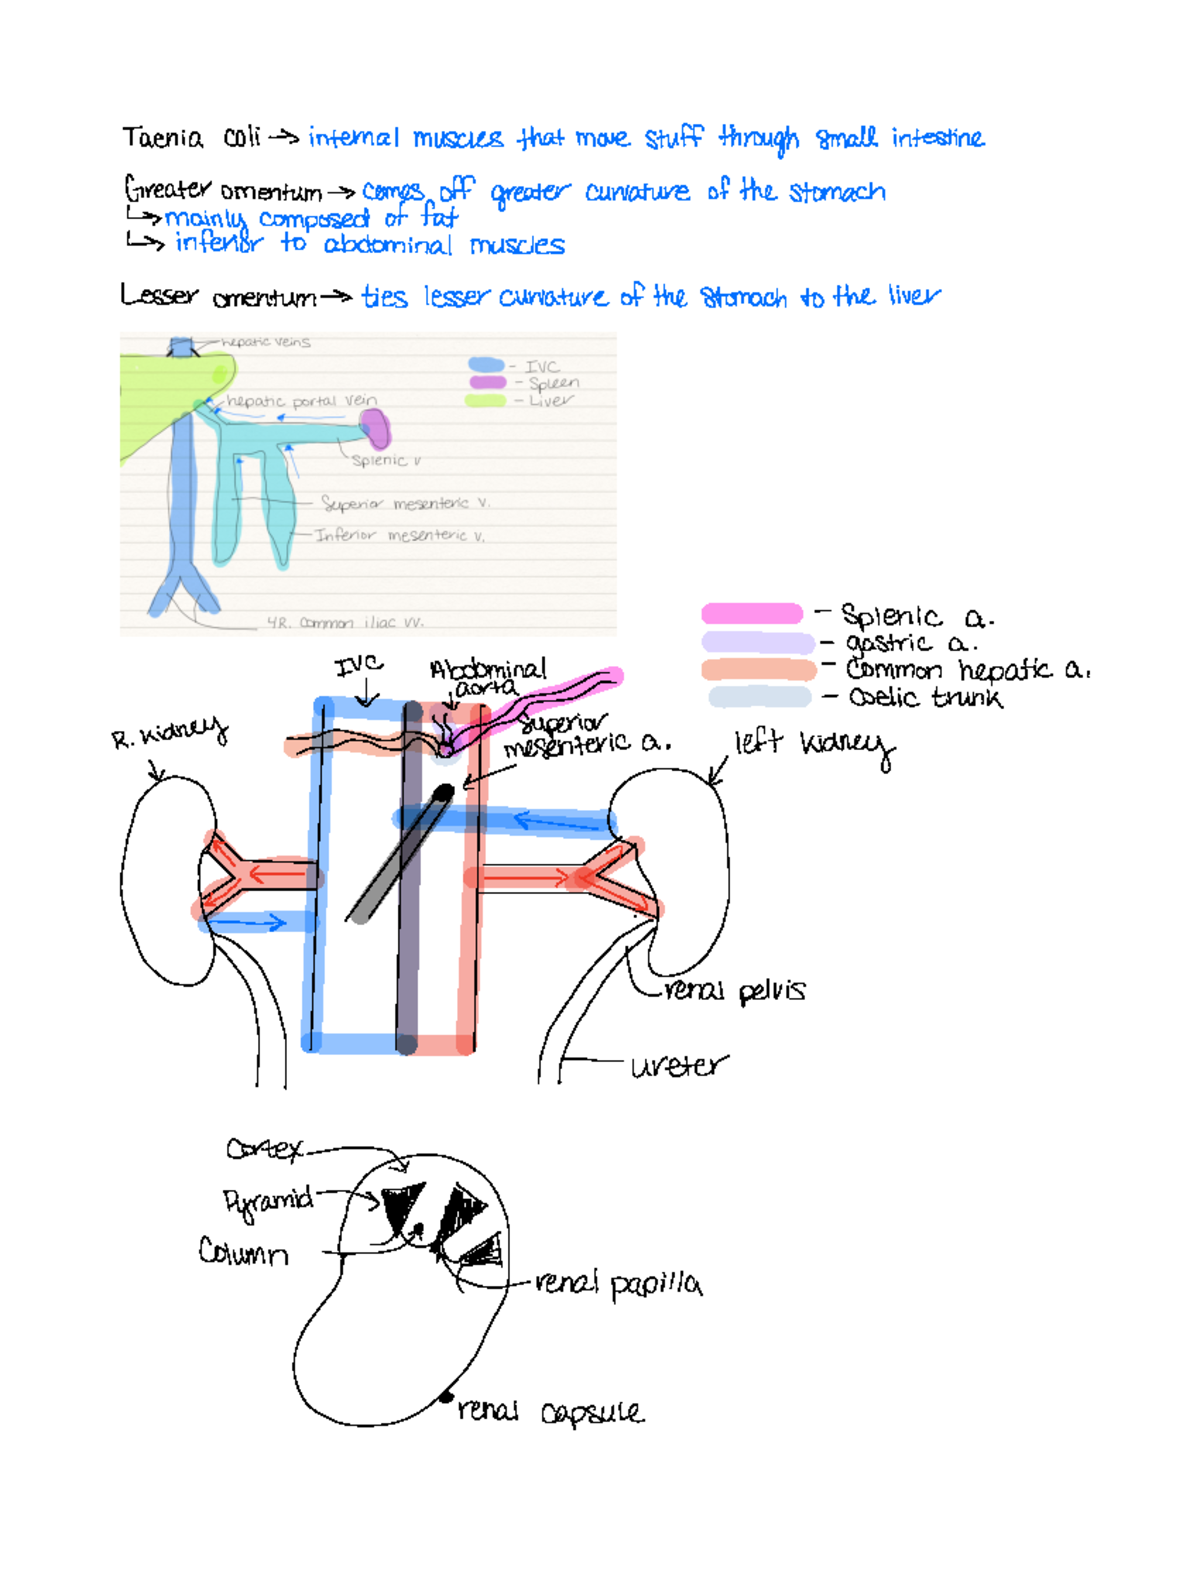 Taenia coli → internal muscles that move stuff through small intestine
Greater omentum → comes off greater curvature of the stomach
↳ mainly composed of fat
↳ inferior to abdominal muscles
Lesser omentum → ties lesser curvature of the stomach to the liver
hepatic veins
- IVC
- Spleen
- Liver
hepatic portal vein
Splenic v
Superior mesenteric v.
Inferior mesenteric v.
Common iliac vv.
- Splenic a.
- gastric a.
- Common hepatic a.
- Coelic trunk
IVC
Abdominal
aorta
Superior
mesenteric a.
R. kidney
left kidney
renal pelvis
ureter
Cortex
Pyramid
Column
renal papilla
renal capsule